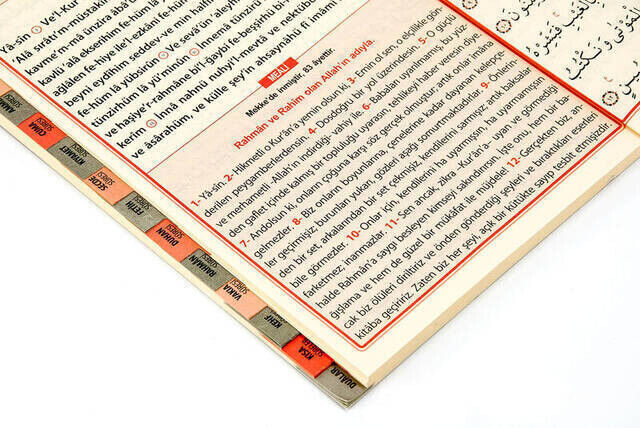 Yâ-sîn ① Ve'l-Kur
'Alâ sırâtı'm-müstakîm
kavme'm-mâ ünzira âbâ
kavlü 'alâ ekserihim fe-hüm lâ
ağlâlen fe-hiye ile'l-ezkâni fe-hüm
beyni eydîhim sedden ve min halfi
fe-hüm lâ yübsırûn ⑨ Ve sevâ'ün 'aleyhim
tünzirhüm lâ yü'minûn ⑩ İnnemâ tünziru
ve haşiye'r-rahmâne bi'l-ğaybi fe-beşşirhü bi-mağ
kerîm ⑪ İnnâ nahnü nuhyi'l-mevtâ ve nektübü
ve âsârahüm, ve külle şey'in ahsaynâhü fî imâmi
MEALİ
Mekke'de inmiştir, 83 âyettir.
Rahmân ve Rahîm olan Allah'ın adıyla.
1- Yâ-sîn, 2- Hikmetli Kur'ân'a yemin olsun ki, 3-emin ol sen, o elçilikle gön-
derilen peygamberlerdensin. 4- Dosdoğru bir yol üzerindesin. 5- O güçlü
ve merhametli -Allah'ın indirdiği- vahiy ile. 6- Babaları uyarılmamış, bu yüz-
den gaflet içinde kalmış bir topluluğu uyarasın, tehlikeyi haber veresin diye
7- Andolsun ki, onların çoğuna karşı söz gerçek olmuştur; artık onlar imâna
gelmezler. 8- Biz onların boyunlarına, çenelerine kadar dayanan kelepçe-
ler geçirmişiz; burunları yukarı, gözleri aşağı somurtmaktadırlar. 9- Önlerin-
den bir set, arkalarından bir set çekmişiz, kendilerini sarmışız; artık baksalar
bile görmezler. 10- Onlar için, kendilerini ha uyarmışsın, ha uyarmamışsın
farketmez; inanmazlar. 11- Sen ancak, zikra -Kur'ân'a- uyan ve görmediği
halde Rahmân'a saygı besleyen kimseyi sakındırırsın. İşte onu, hem bir ba-
ğışlama ve hem de güzel bir mükâfat ile müjdele. 12- Gerçekten biz an-
cak biz ölüleri diriltiriz ve önden gönderdiği şeyleri ve bıraktıkları eserleri
kitâba geçiririz. Zaten biz her şeyi, açık bir kütükte sayıp tesbit etmişizdir.
CUMA
SÛRESİ
KIYAMET
SÛRESİ
SECDE
SÛRESİ
FETİH
SÛRESİ
DUHAN
SÛRESİ
RAHMÂN
SÛRESİ
VAKIA
SÛRESİ
KEHF
SÛRESİ
KISA
SÛRELER
DUÂLAR